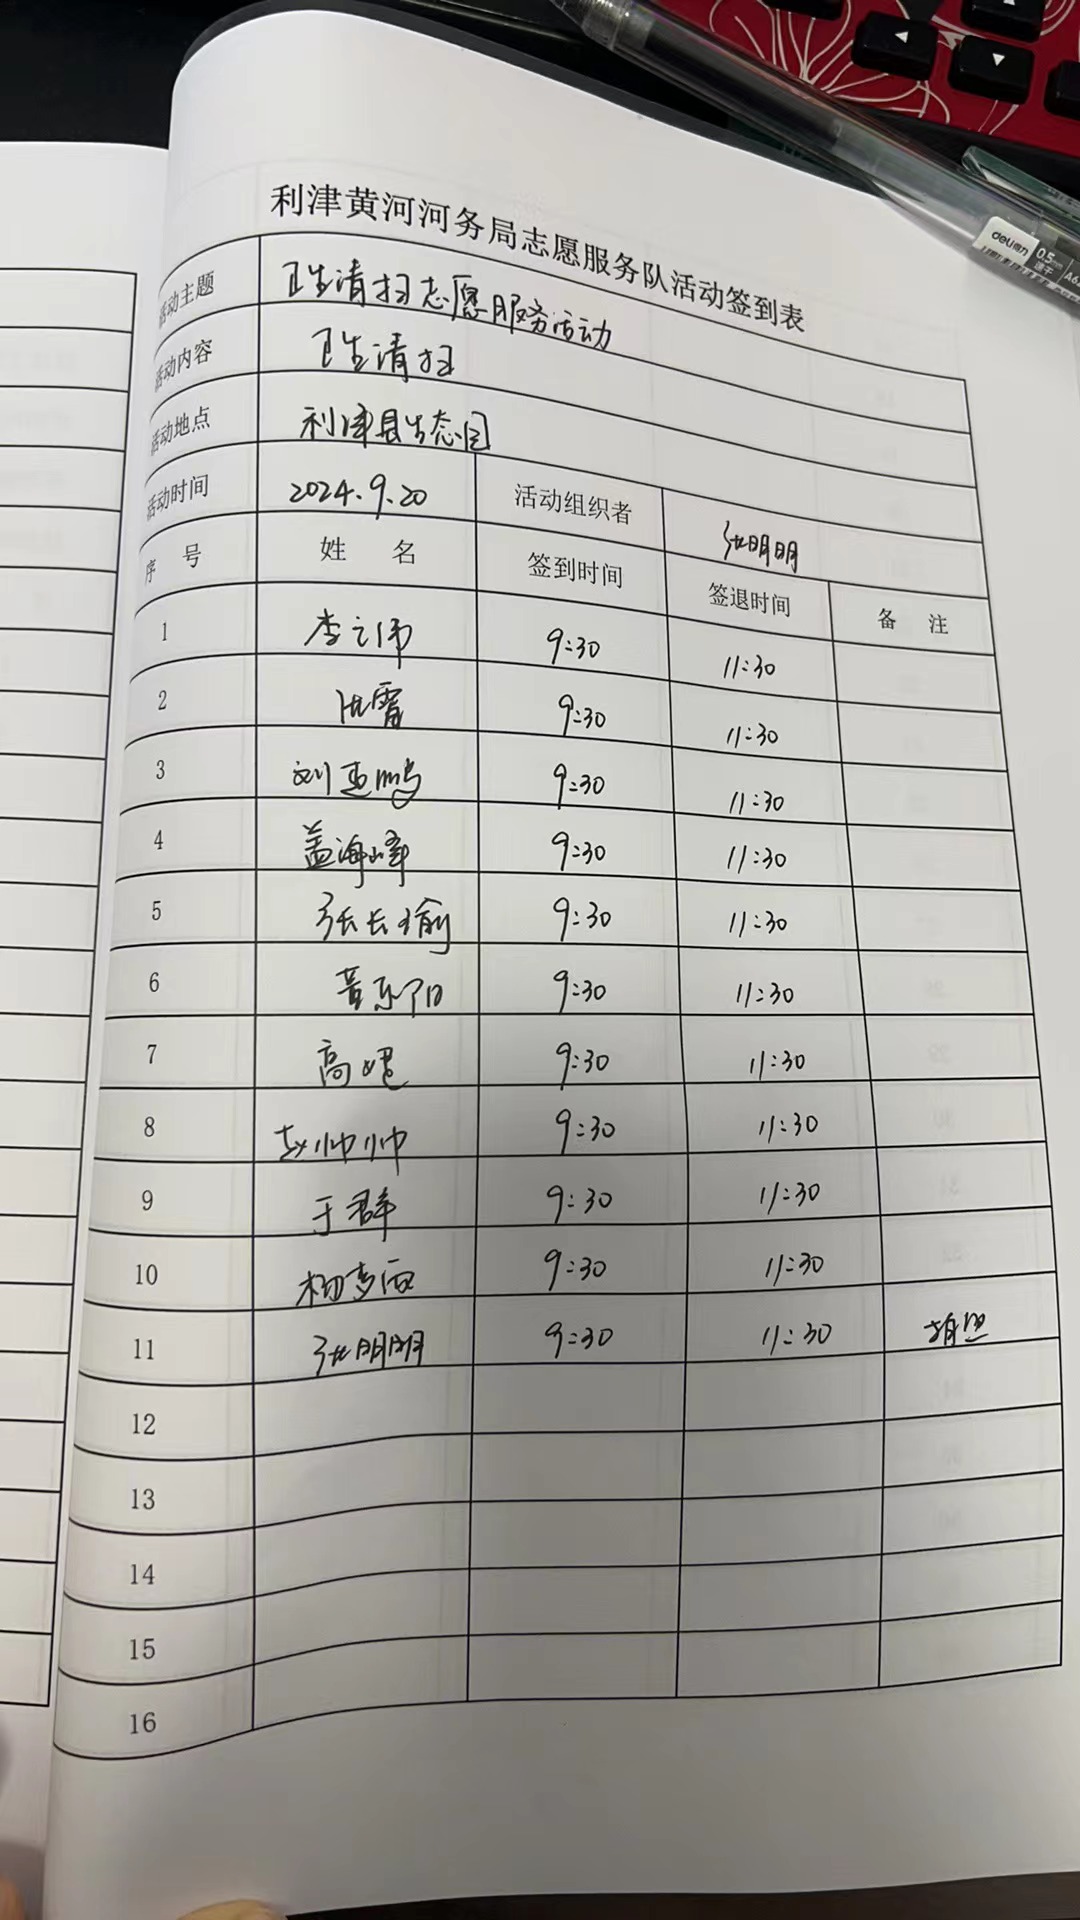 利津黄河河务局志愿服务队活动签到表
活动主题 卫生清扫志愿服务活动
活动内容 卫生清扫
活动地点 利津县生态园
活动时间 2024.9.20 活动组织者 张明明
序号 姓名 签到时间 签退时间 备注
1 李之伟 9:30 11:30
2 9:30 11:30
3 刘亚鹏 9:30 11:30
4 盖海峰 9:30 11:30
5 张长瑜 9:30 11:30
6 9:30 11:30
7 高 9:30 11:30
8 赵帅帅 9:30 11:30
9 于群 9:30 11:30
10 杨梦雨 9:30 11:30
11 张明明 9:30 11:30 拍照
12
13
14
15
16
deli得力
0.5mm